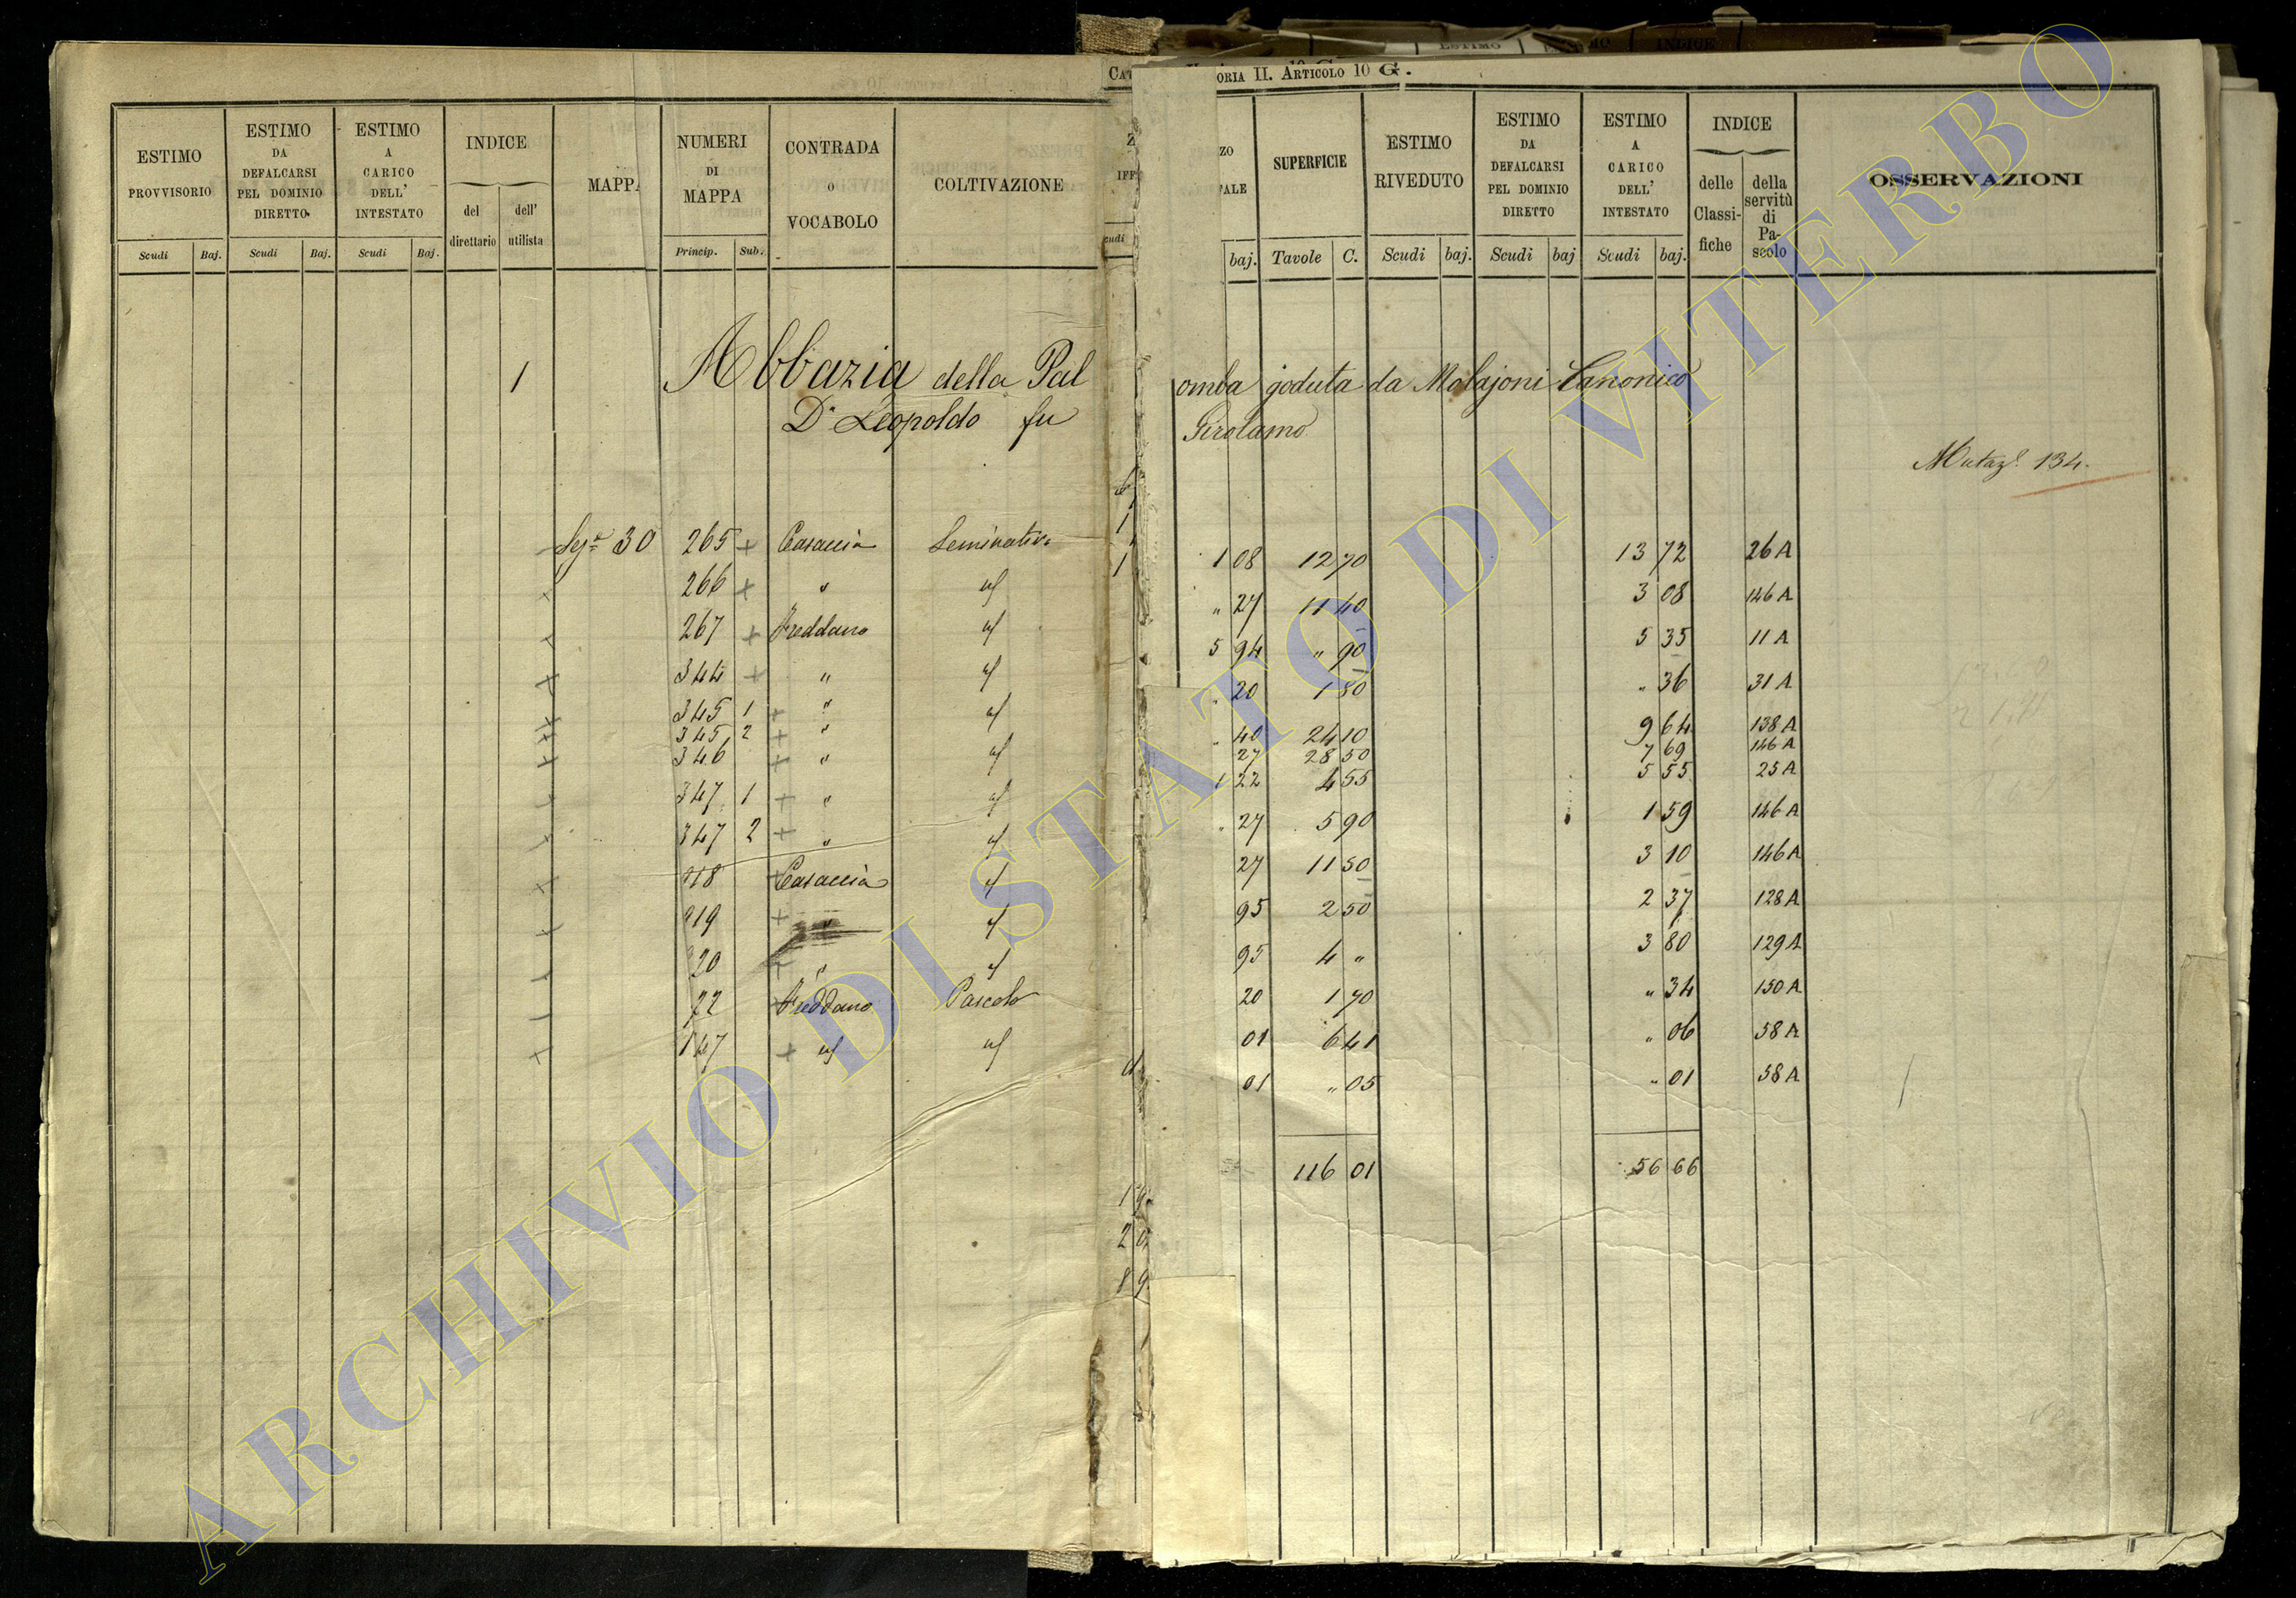 ORIA II. ARTICOLO 10 G.
ESTIMO PROVVISORIO
ESTIMO DA DEFALCARSI PEL DOMINIO DIRETTO
ESTIMO A CARICO DELL' INTESTATO
INDICE
del direttario
dell' utilista
MAPPA
NUMERI DI MAPPA
CONTRADA O VOCABOLO
COLTIVAZIONE
SUPERFICIE
ESTIMO RIVEDUTO
ESTIMO DA DEFALCARSI PEL DOMINIO DIRETTO
ESTIMO A CARICO DELL' INTESTATO
INDICE
delle Classifiche
della servitù di Pascolo
OSSERVAZIONI
Scudi Baj. Scudi Baj. Scudi Baj. Princip. Sub. baj. Tavole C. Scudi baj. Scudi baj Scudi baj.
1 Abbazia della Pal omba goduta da Malajoni Canonico
D. Leopoldo fu Girolamo
Mutaz. 134.
Sez. 30 265 + Casaccia Seminativo 1 08 12 70 13 72 26 A
266 + " id " 27 11 40 3 08 146 A
267 + Freddano id 5 94 " 90 5 35 11 A
344 + " id 20 1 80 " 36 31 A
345 1 + " id 40 24 10 9 64 138 A
345 2 + " 27 28 50 7 69 146 A
346 + " id 1 22 4 55 5 55 25 A
347 1 + " id " 27 5 90 1 59 146 A
347 2 + " id 27 11 50 3 10 146 A
918 Casaccia id 95 2 50 2 37 128 A
919 + " id 95 4 " 3 80 129 A
20 + " id 20 1 70 " 34 150 A
72 Freddano Pascolo 01 6 41 " 06 58 A
147 + id id 01 " 05 " 01 58 A
116 01 56 66
ARCHIVIO DI STATO DI VITERBO